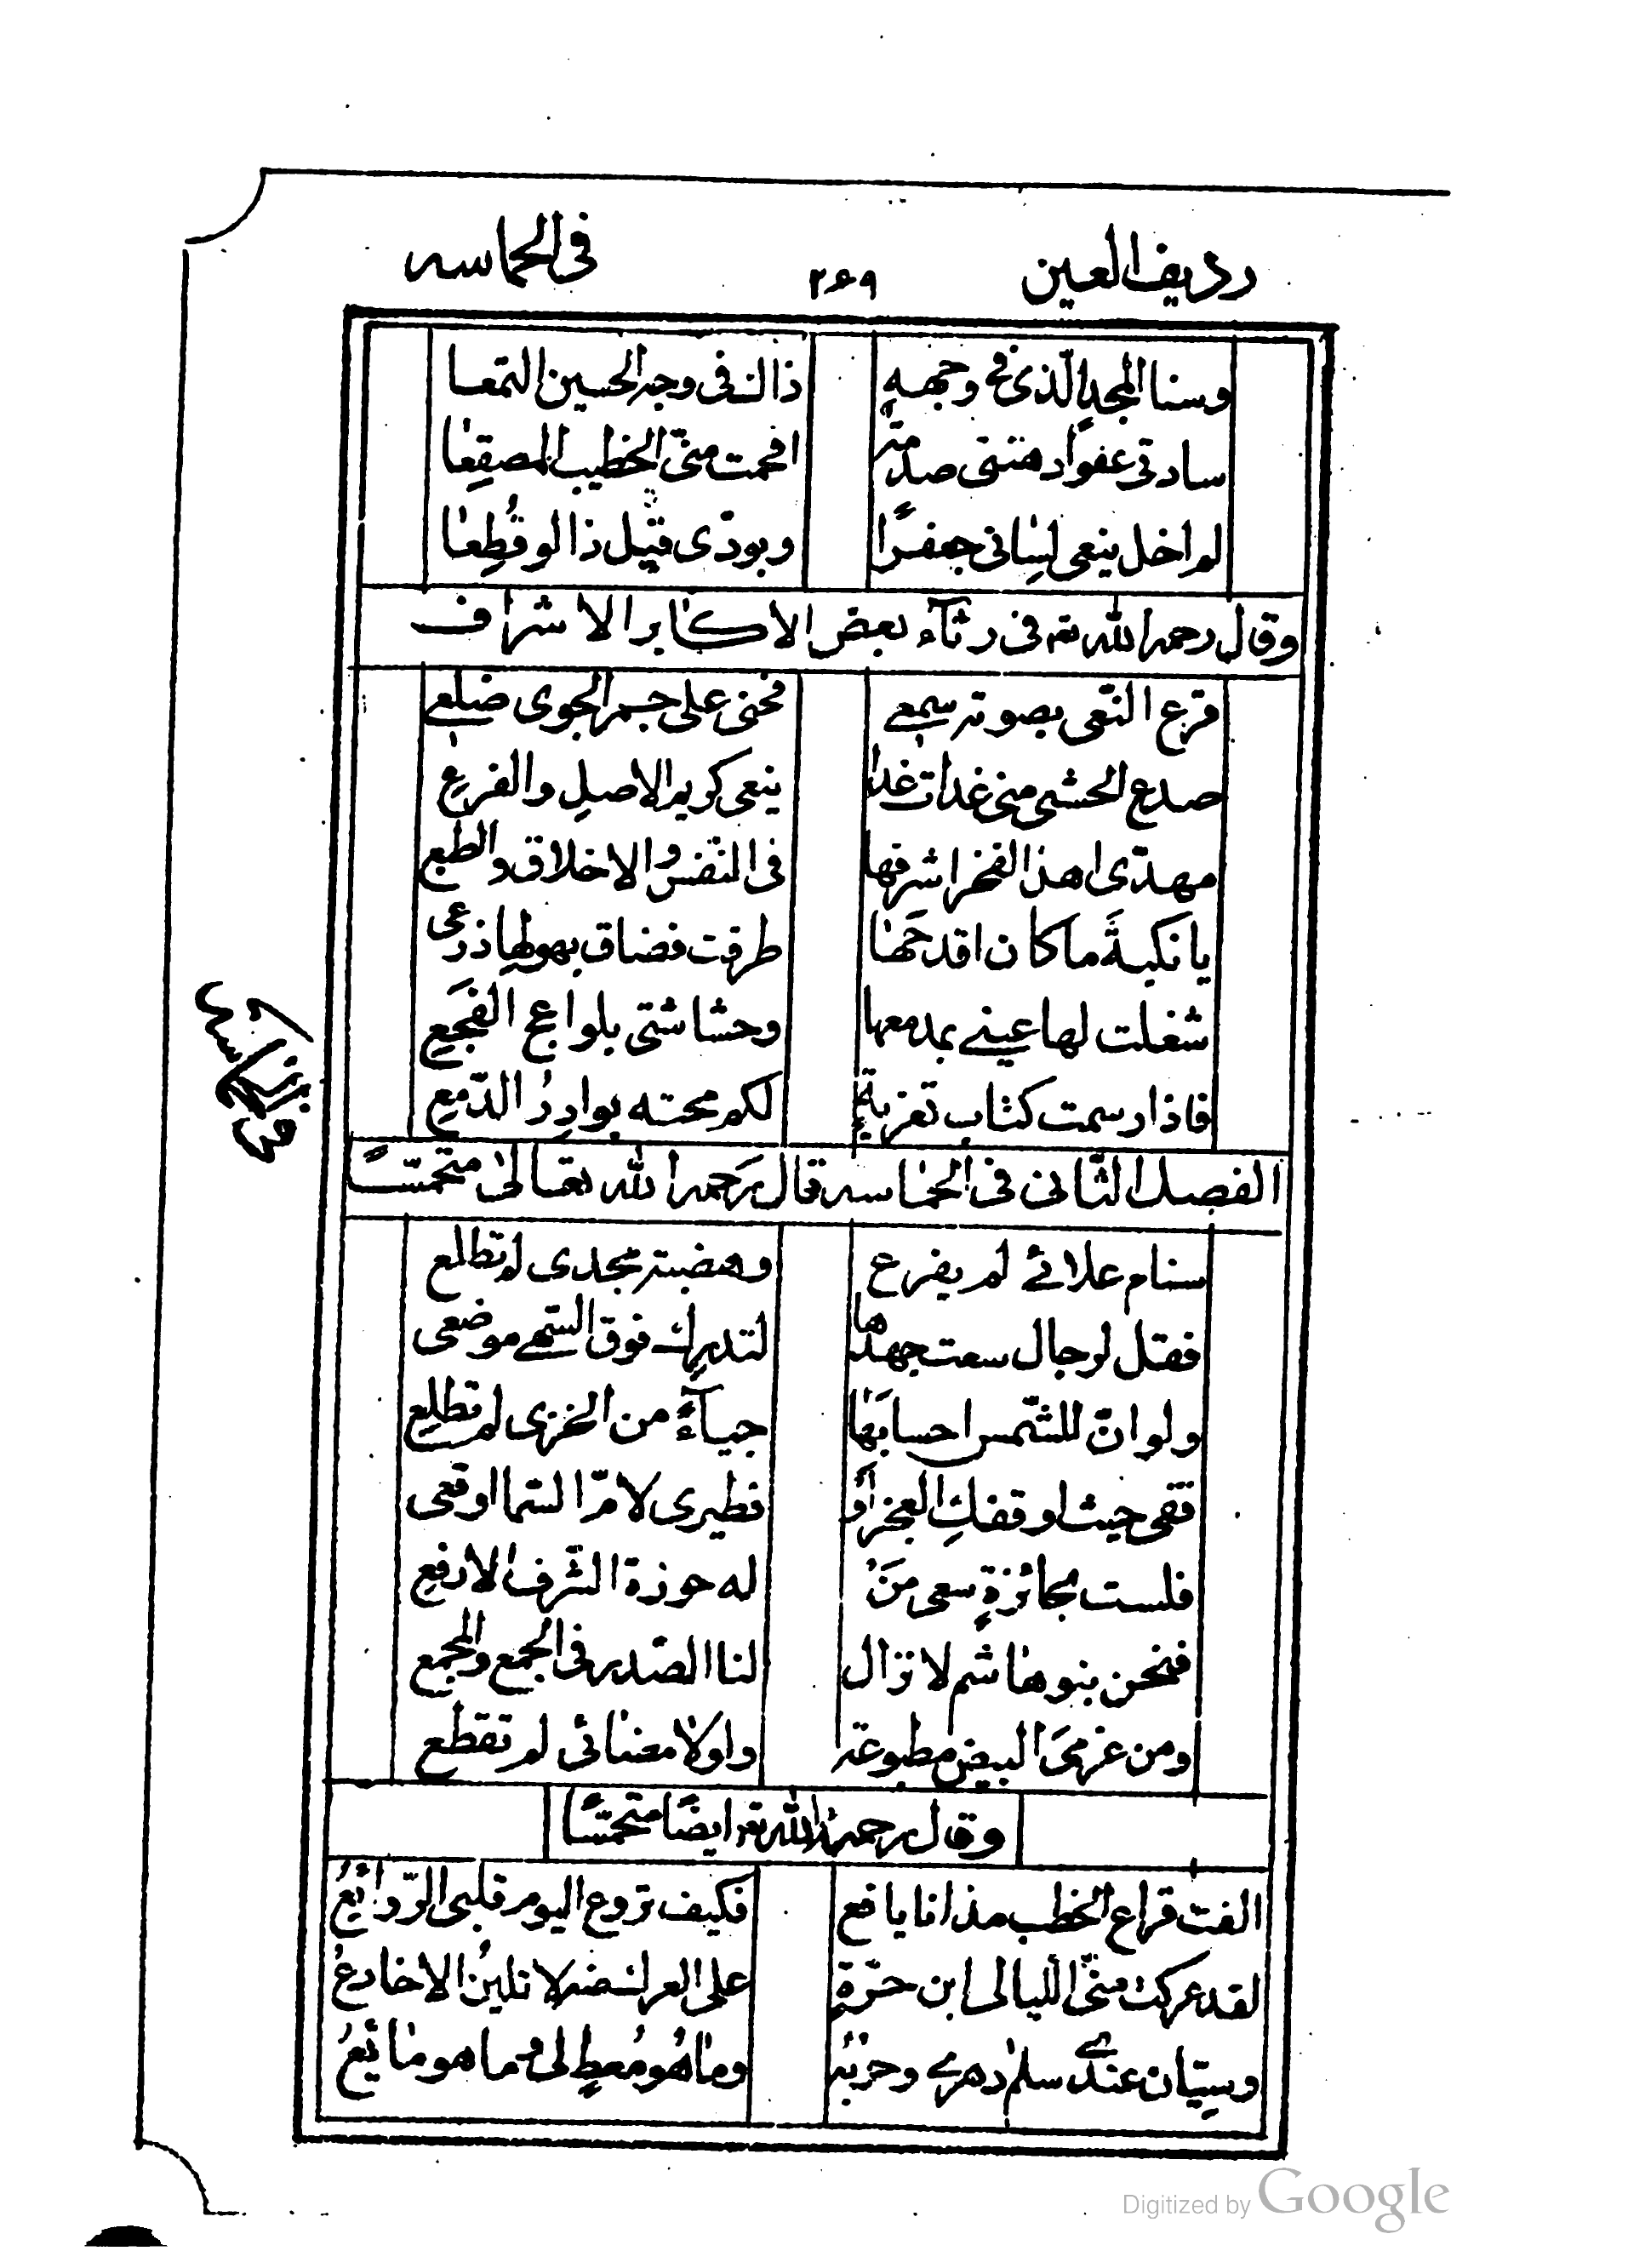 رديف العين ٢٦٩ في الحماسه
وسنا المجد الّذى في وجههِ ذاك في وجه الحسين التمعا
سادتى عفوا دهتنى صدمة افحمت منّى الخطيب المصقِعا
لم اخل ينعى لسِانى جعفرًا وبودّى قبل ذا لو قُطِعا
وقال رحمه الله تع فى رثآء بعض الاكابر الاشراف
قرع النّعى بصوته سمعى فحنى على جمر الجوى ضلعى
صدع الحشى منى غدات غدا ينعى كريم الاصلِ والفرعِ
مهدّى هذا الفخر اشرفها فى النّفس والاخلاق والطبع
يا نكبةً ما كان افدحَها طرقت فضاق بهولها ذرعى
شغلت لها عينى بمدمعها وحشاشتى بلواعج الفجَعِ
فاذا رسمت كتاب تعزيةٍ لكم محته بوادِرُ الدّمعِ
الفصل الثّانى فى الحماسه قال رَحمه الله تعالىٰ متحمّسًا
سنام علائى لم يفرع وهضبة مجدى لم تطلع
فقل لرجال سعت جهدها لتدرِك فوق السّهى موضعى
ولو انّ للشّمس احسابَها حيآءً من الخزى لم تطلعِ
ققى حيث اوقفكِ العجز أو فطيرى لامّ السّما اوقعى
فلست بحائزةٍ سعى مَنْ له حوزة الشّرف الارفعِ
فنحن بنو هاشم لا تزال لنا الصّدر فى الجمع والمجمع
ومن عزمىَ البيض مطبوعة ولولا مضائى لم تقطع
وقال رحمهُ الله تع ايضًا متحمّسًا
الفت قراع الخطب مذ انا يافع فكيف تروع اليوم قلبى الرّوائعُ
لقد عركت منّى اللّيالى ابن حرّةٍ على العرك ضه لا تلينُ الاخادعُ
وسِيّان عندى سلمُ دهرى وحربُه وما هُو مُعطٍ لى وما هو مانعُ